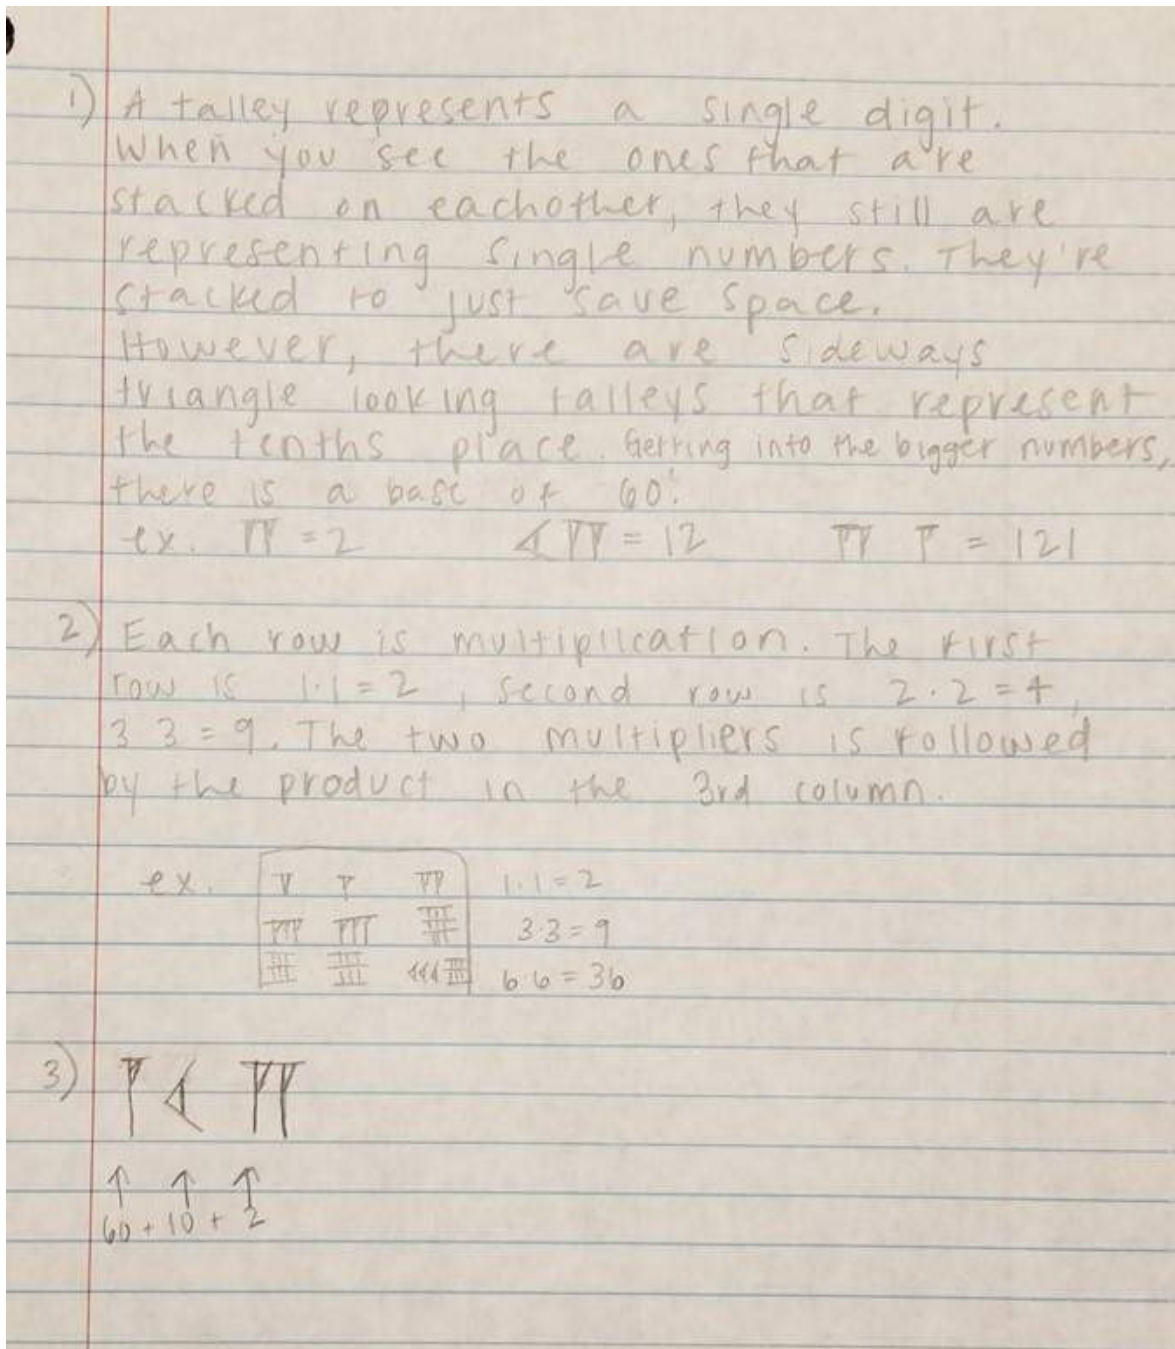 1) A talley represents a single digit.
When you see the ones that are
stacked on eachother, they still are
representing single numbers. They're
stacked to just save space.
However, there are sideways
triangle looking talleys that represent
the tenths place. Getting into the bigger numbers,
there is a base of 60.
ex. 𒁹𒁹 = 2 𒌋𒁹𒁹 = 12 𒁹𒁹 𒁹 = 121
2) Each row is multiplication. The first
row is 1·1=2, second row is 2·2=4,
3 3=9. The two multipliers is followed
by the product in the 3rd column.
ex. 1·1=2
3·3=9
6·6=36
3) 𒁹 𒌋 𒁹𒁹
↑ ↑ ↑
60 + 10 + 2